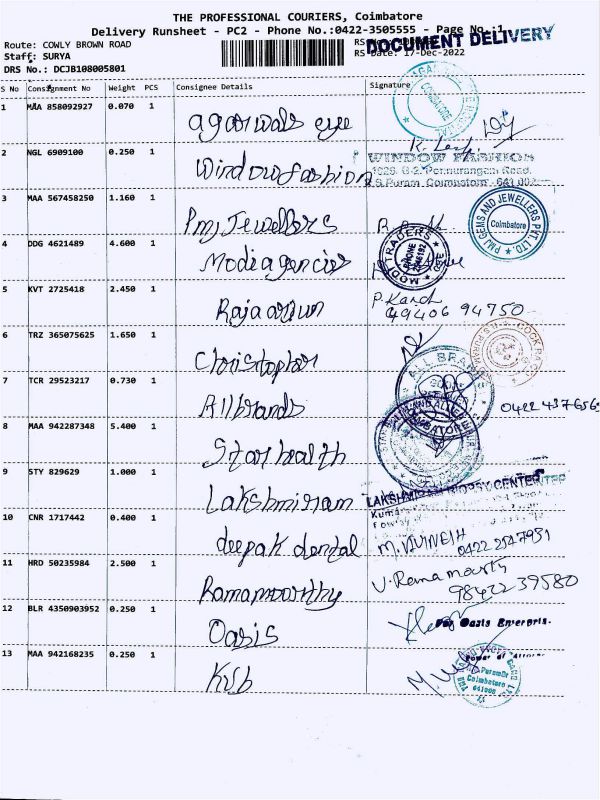 THE PROFESSIONAL COURIERS, Coimbatore
Delivery Runsheet - PC2 - Phone No.:0422-3505555 - Page No.:1
DOCUMENT DELIVERY
Route: COWLY BROWN ROAD
Staff: SURYA RS Date: 17-Dec-2022
DRS No.: DCJB108005801
S No Consignment No Weight PCS Consignee Details Signature
1 MAA 858092927 0.070 1 agarwals eye
2 NGL 6909100 0.250 1 Window fashion WINDOW FASHION
3 MAA 567458250 1.160 1 Pmj Jewellers PMJ GEMS AND JEWELLERS PVT. LTD. Coimbatore
4 DDG 4621489 4.600 1 Modi agencies MODI TRADERS
5 KVT 2725418 2.450 1 Raja arjun 49406 94750
6 TRZ 365075625 1.650 1 Christopher
7 TCR 29523217 0.730 1 All brands ALL BRAND 0422 437656
8 MAA 942287348 5.400 1 Star health
9 STY 829629 1.000 1 Lakshmiram
10 CNR 1717442 0.400 1 deepak dental 0422 2547951
11 HRD 50235984 2.500 1 Ramamoorthy V. Ramamoorthy 98422 39580
12 BLR 4350903952 0.250 1 Oasis For Oasis Enterpris.
13 MAA 942168235 0.250 1 Kvb